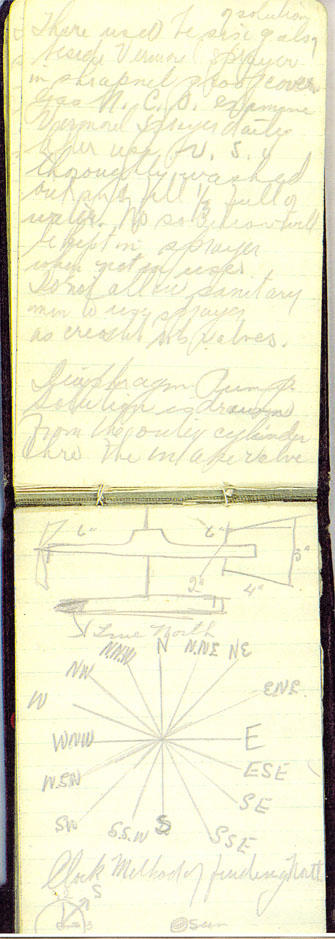 of solution
There used to be six gals
beside Vermorel Sprayer
in shrapnel proof cover
Gas N.C.O. examine
Vermorel Sprayer daily
After use
thoroughly washed
out and fill 1/3 full of
water. No solution will
be kept in sprayer
when not in use.
Do not allow sanitary
men to use sprayer
as creosol valves.
Diaphragm Pump
Solution is drawn
from the outer cylinder
thro the intake valve
6"
6"
3"
2"
4"
True North
N.N.W
N
N.NE
NE
NW
ENE
W
WNW
E
W.S.W
ESE
SE
SW
S.S.W
S
SSE
Clock Method of finding North
S
3
Sun